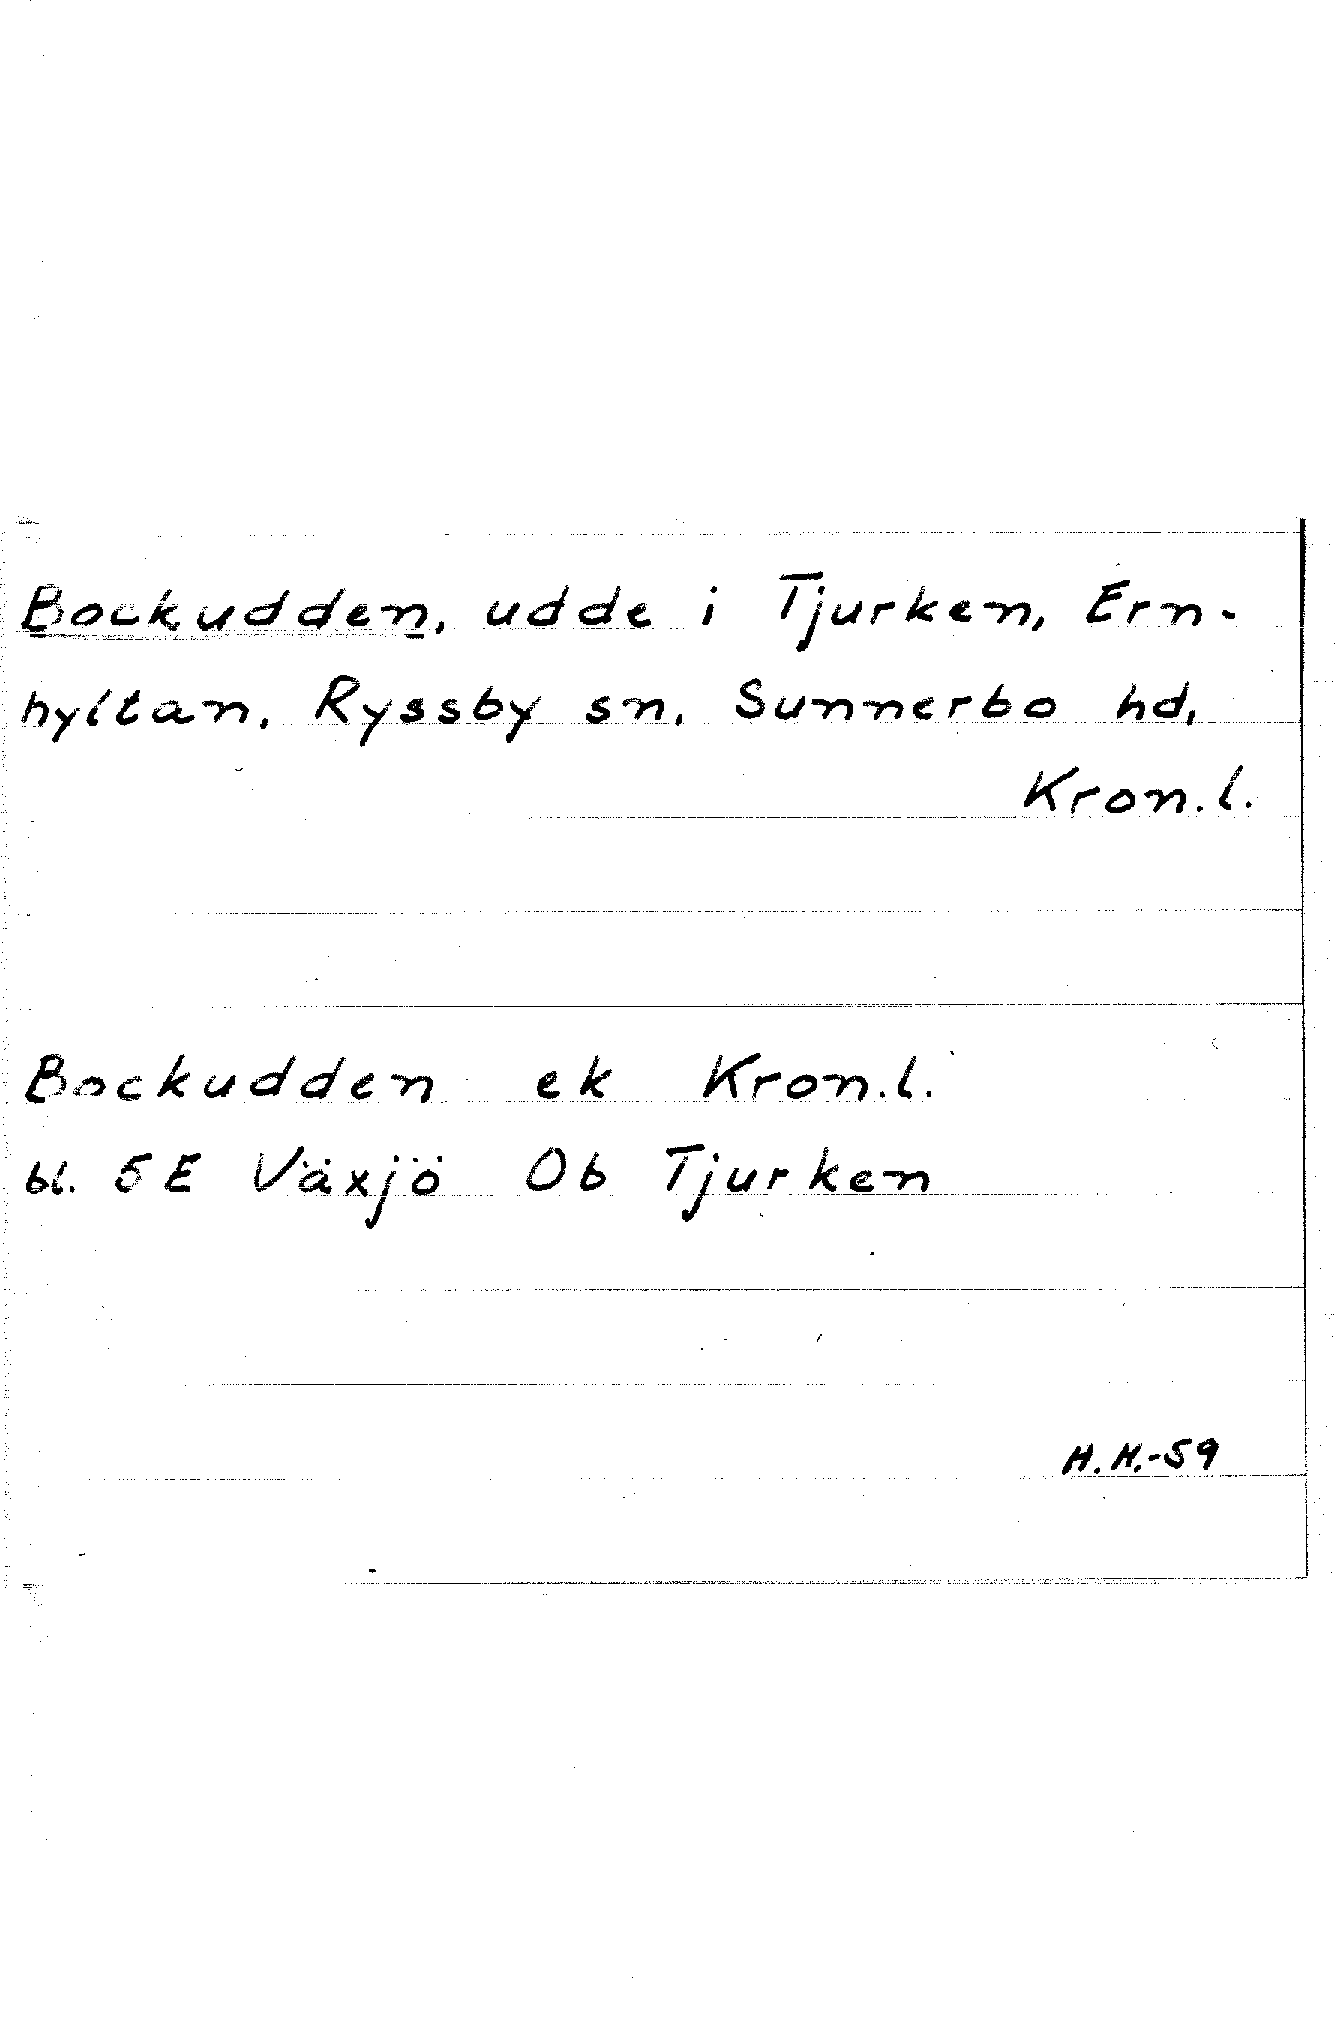 Bockudden, udde i Tjurken, Ern-
hyltan, Ryssby sn, Sunnerbo hd,
Kron.l.
Bockudden ek Kron.l.
bl. 5E Växjö Ob Tjurken
H.H.-59